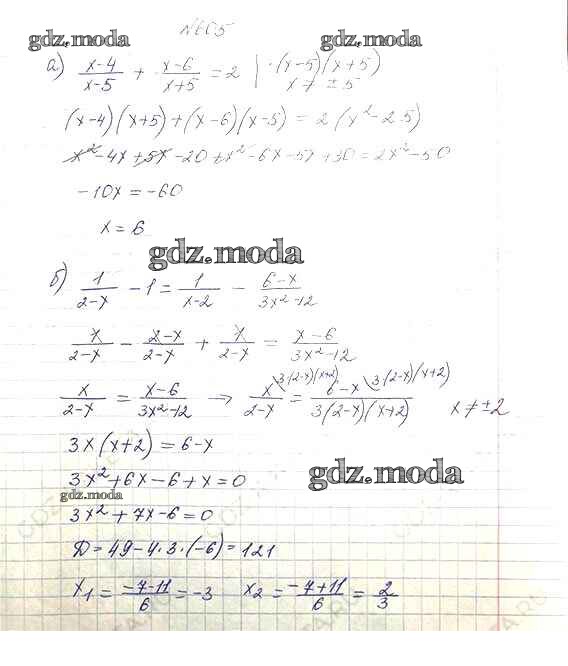 №605
gdz.moda gdz.moda
а) (x-4)/(x-5) + (x-6)/(x+5) = 2 | ·(x-5)(x+5)
x ≠ ±5
(x-4)(x+5)+(x-6)(x-5) = 2(x²-25)
x²-4x+5x-20+x²-6x-5x+30=2x²-50
-10x=-60
x=6
gdz.moda
б) 1/(2-x) - 1 = 1/(x-2) - (6-x)/(3x²-12)
1/(2-x) - (2-x)/(2-x) + 1/(2-x) = (x-6)/(3x²-12)
x/(2-x) = (x-6)/(3x²-12) → x/(2-x) \3(2-x)(x+2) = (6-x)/(3(2-x)(x+2)) \3(2-x)(x+2) x≠±2
3x(x+2)=6-x
3x²+6x-6+x=0
gdz.moda gdz.moda
3x²+7x-6=0
Д=49-4·3·(-6)=121
x₁ = (-7-11)/6 = -3 x₂ = (-7+11)/6 = 2/3